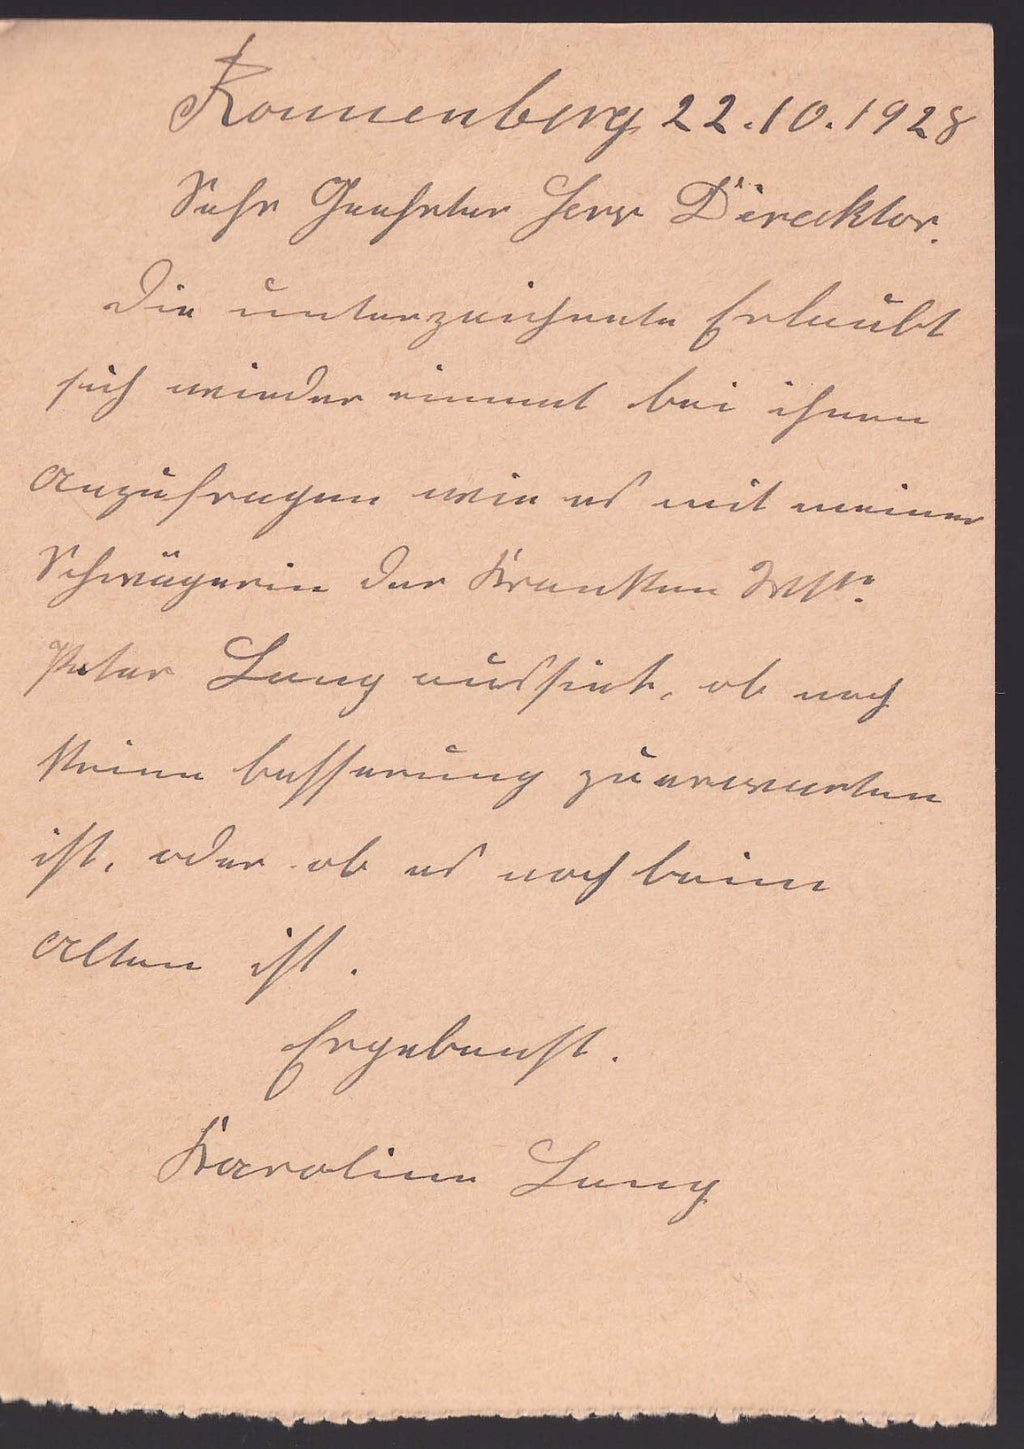 Ronnenberg 22.10.1928
Sehr Geehrter Herr Direcktor.
Die unterzeichnete Erlaubt
sich wieder einmal bei ihnen
anzufragen wie es mit meiner
Schwägerin der Kranken
Peter Lang aussieht, ob noch
keine besserung zu erwarten
ist, oder ob es noch beim
alten ist.
Ergebenst.
Karoline Lang